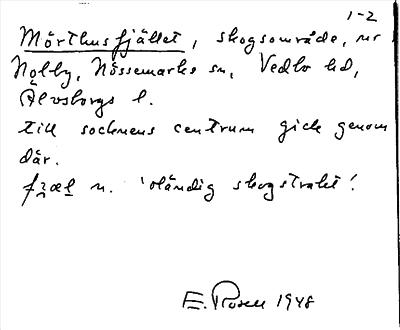 1-2
Mörthusfjället, skogsområde, nr
Holby, Nössemarks sn, Vedbo hd,
Älvsborgs l.
till socknens centrum gick genom
där.
n. 'oländig skogstrakt'.
E. Rosell 1948